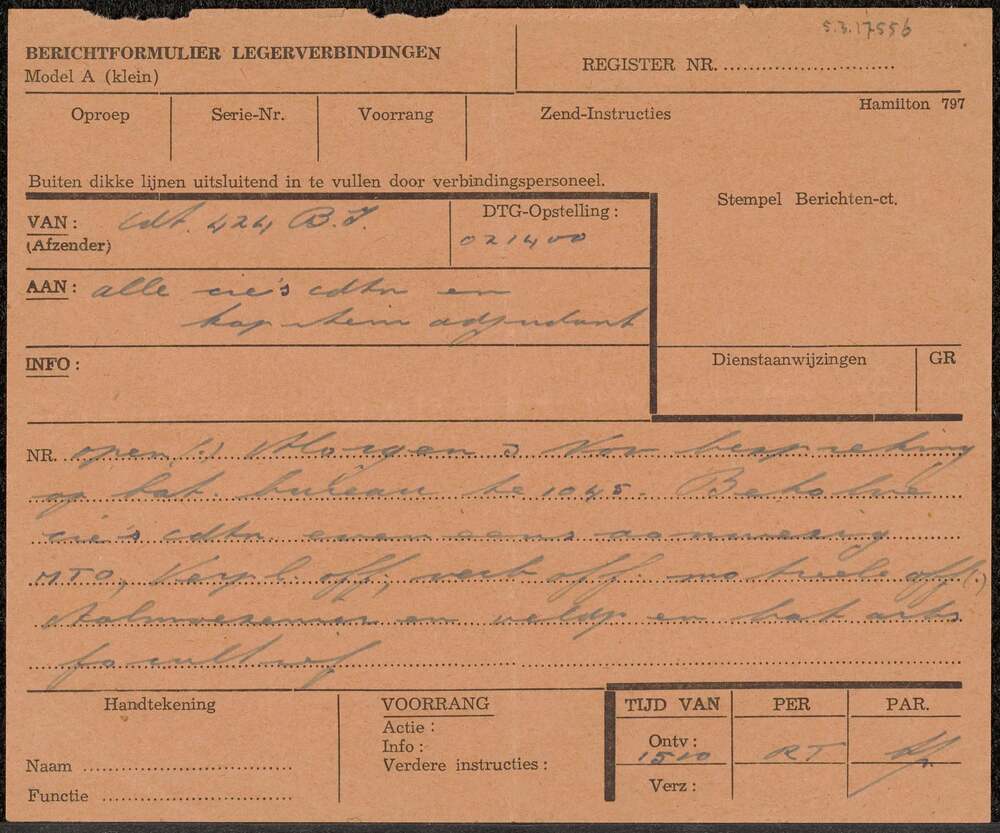 5.3.17556
BERICHTFORMULIER LEGERVERBINDINGEN
Model A (klein)
REGISTER NR. ............................
Oproep Serie-Nr. Voorrang Zend-Instructies Hamilton 797
Buiten dikke lijnen uitsluitend in te vullen door verbindingspersoneel.
Stempel Berichten-ct.
VAN: cdt. 424 B.I.
(Afzender)
DTG-Opstelling:
021400
AAN: alle cie's cdtn en
kapitein adjudant
INFO:
Dienstaanwijzingen GR
NR. open (.) Morgen 3 Nov bespreking
op bat. bureau te 1045. Behalve
cie's cdtn. eveneens aanwezig
MTO, Verpl. off, verb off.
Aalmoezenier en veldp en bat arts
facultief
Handtekening
Naam ................................
Functie ................................
VOORRANG
Actie:
Info:
Verdere instructies:
TIJD VAN PER PAR.
Ontv: 1510 RT
Verz: